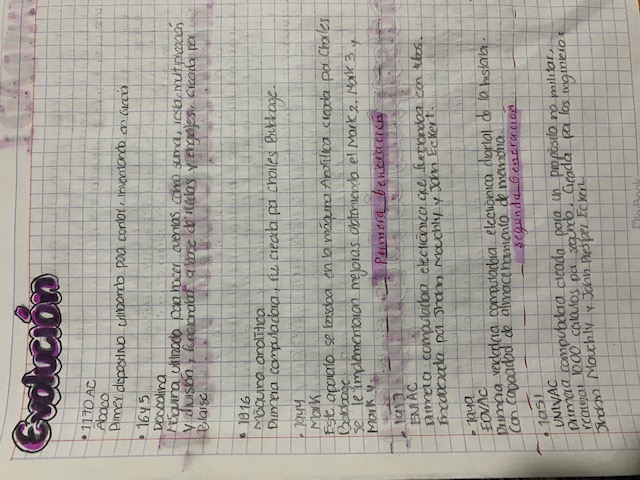 Evolución
• 1170 AC
Ábaco
Primer dispositivo utilizando para contar, inventando en Grecia
• 1645
Pascalina
Máquina utilizada para hacer cuentas como suma, resta, multiplicación
y división, funcionaba a base de ruedas y engrajes. Creada por
Blaise.
• 1816
Máquina analítica
Primera computadora, fue creada por Charles Bubbage.
• 1944
Mark
Este aparato se basaba en la máquina Analítica creada por Charles
Babbage
se le implementaron mejoras obteniendo el Mark 2, Mark 3 y
Mark 4.
Primera Generación
• 1947
ENIAC
Primera computadora electrónica que funcionaba con tubos.
por Jhohn Mauchly y John Eckert.
• 1949
EDVAC
Primera verdadera computadora electrónica digital de la historia.
Con capacidad de almacenamiento de memoria.
Segunda Generación
• 1951
UNIVAC
Primera computadora creada para un propósito no militar,
realizar 1000 cálculos por segundo. Creada por los ingenieros
Jhohn Mauchly y John Presper Eckert.